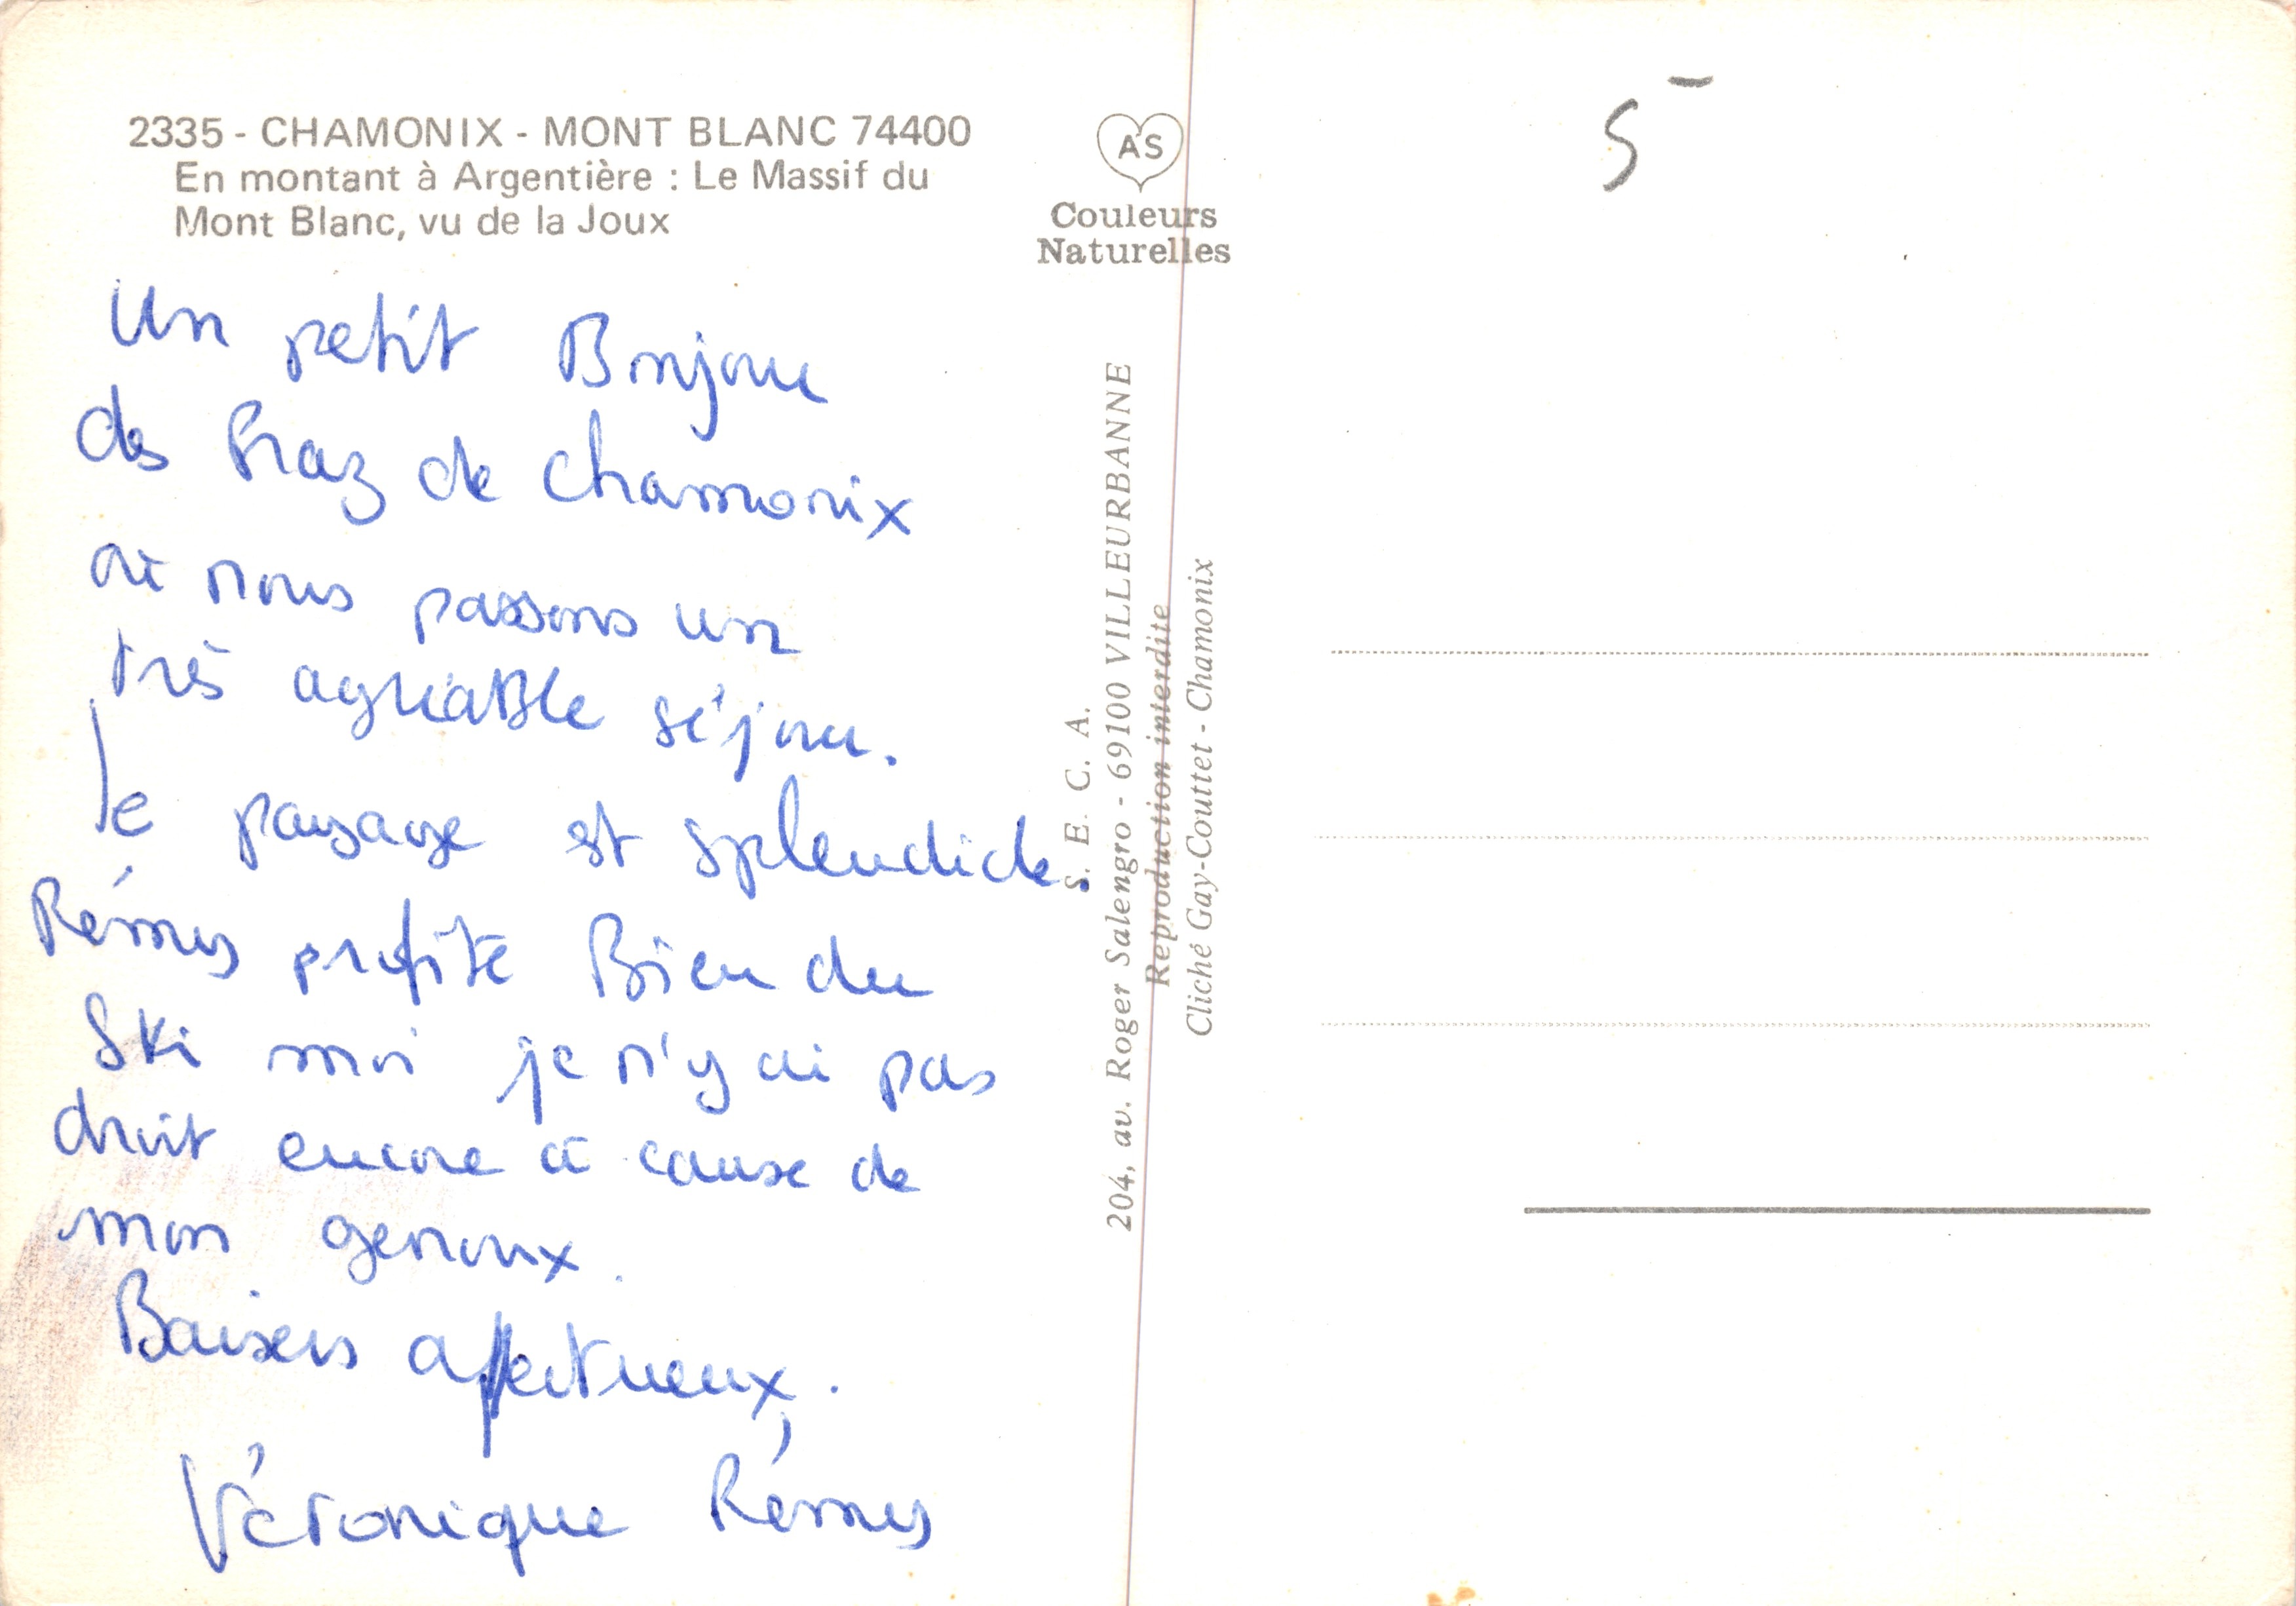 2335 - CHAMONIX - MONT BLANC 74400
En montant à Argentière : Le Massif du
Mont Blanc, vu de la Joux
AS
Couleurs
Naturelles
Un petit Bonjour
des Praz de Chamonix
où nous passons un
très agréable séjour.
Le paysage est splendide.
Rémus profite Bien du
Ski moi je n'y ai pas
droit encore à cause de
mon genoux.
Baisers affectueux.
Véronique Rémus
S. E. C. A.
204, av. Roger Salengro - 69100 VILLEURBANNE
Reproduction interdite
Cliché Gay-Couttet - Chamonix
5-